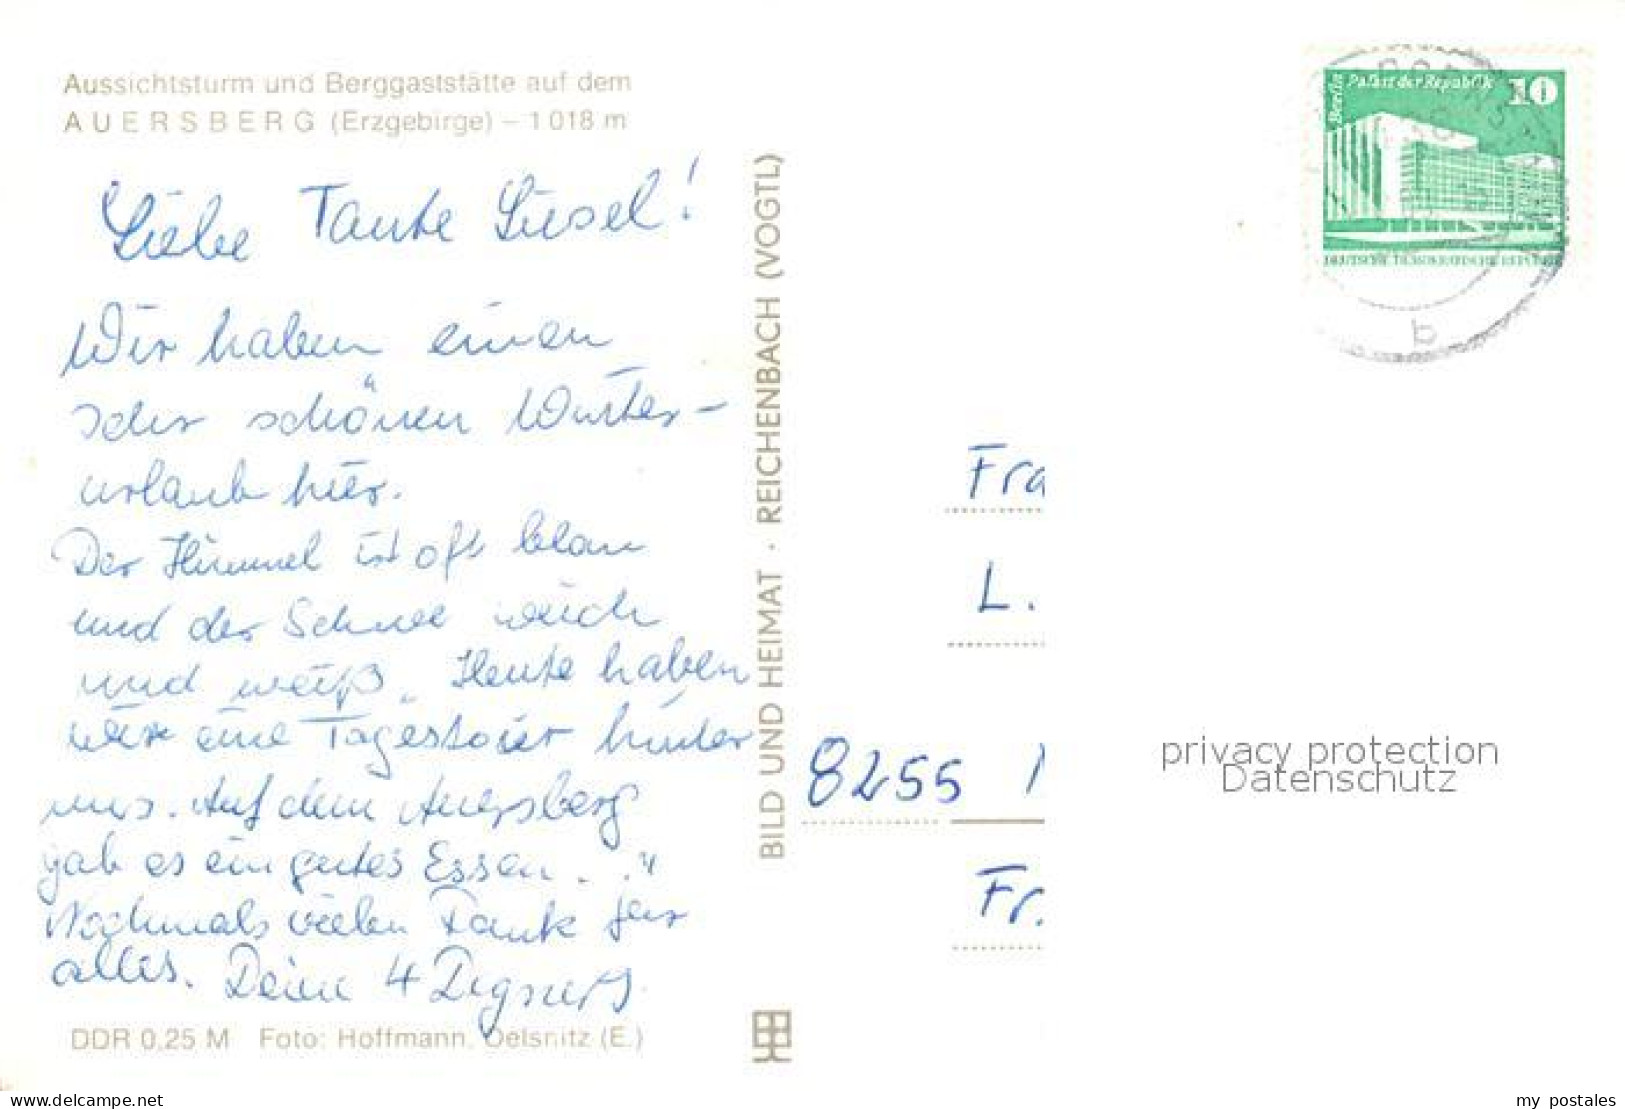 Aussichtsturm und Berggaststätte auf dem
AUERSBERG (Erzgebirge) – 1018 m
Liebe Tante Liesel!
Wir haben einen
sehr schönen Winter-
urlaub hier.
Der Himmel ist oft blau
und der Schnee weich
und weiß. Heute haben
wir eine Tagestour hinter
uns. Auf dem Auersberg
gab es ein gutes Essen.
Nochmals vielen Dank für
alles. Deine 4
DDR 0,25 M Foto: Hoffmann, Oelsnitz (E.)
BILD UND HEIMAT · REICHENBACH (VOGTL)
Berlin Palast der Republik 10
DEUTSCHE DEMOKRATISCHE REPUBLIK
b
Fra
L.
8255
Fr.
privacy protection
Datenschutz
www.delcampe.net
my_postales